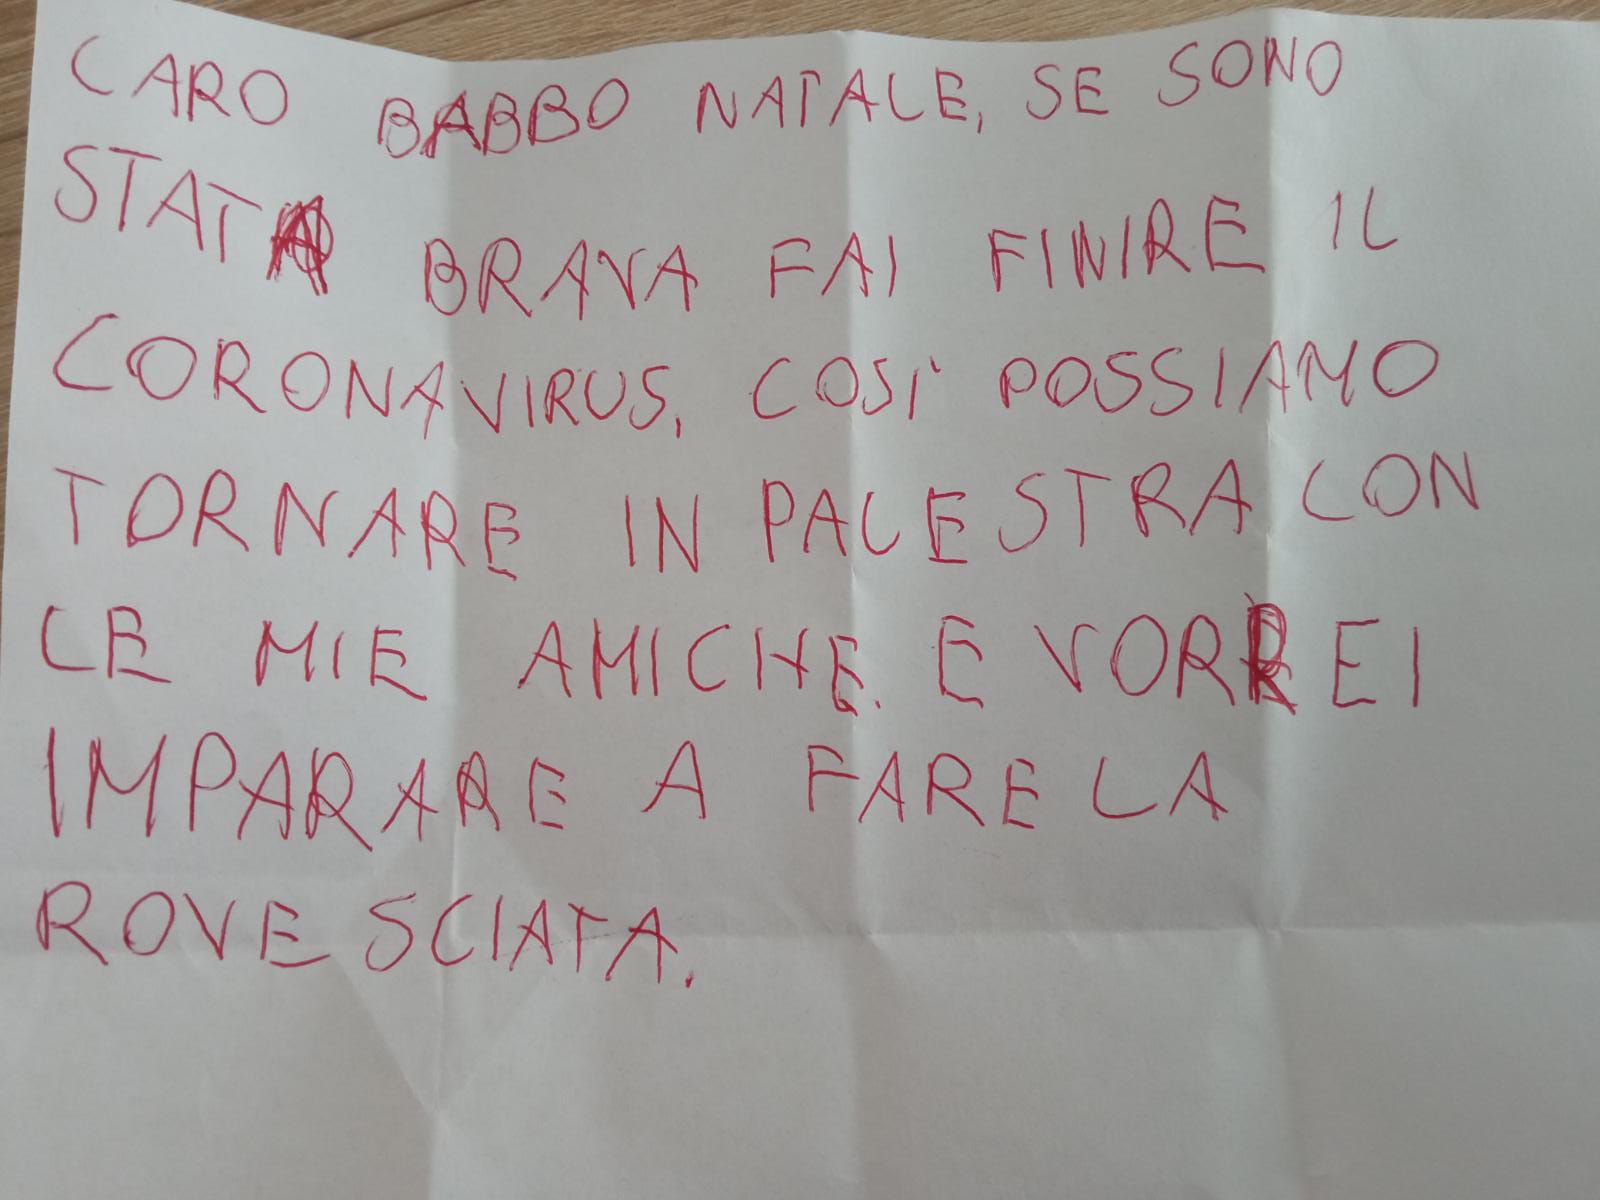 CARO BABBO NATALE, SE SONO
STATA BRAVA FAI FINIRE IL
CORONAVIRUS, COSI' POSSIAMO
TORNARE IN PALESTRA CON
LE MIE AMICHE. E VORREI
IMPARARE A FARE LA
ROVESCIATA.